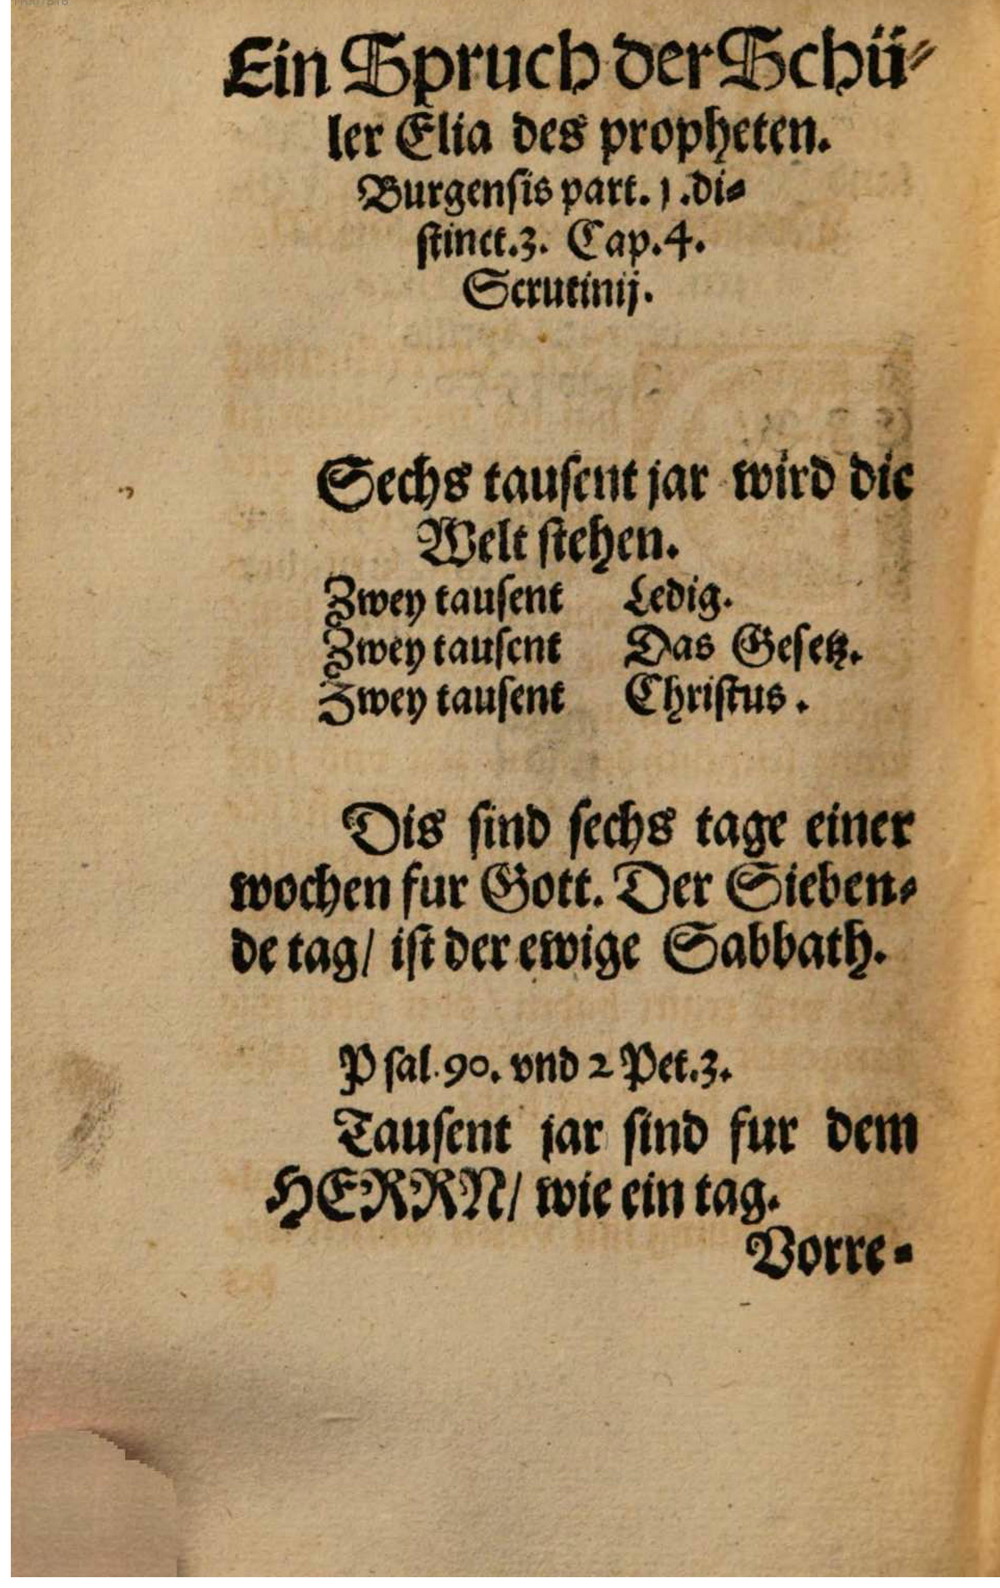 Ein Spruch der Schü-
ler Elia des propheten.
Burgensis part. 1. di-
stinct. 3. Cap. 4.
Scrutinij.
Sechs tausent jar wird die
Welt stehen.
Zwey tausent Ledig.
Zwey tausent Das Gesetz.
Zwey tausent Christus.
Dis sind sechs tage einer
wochen fur Gott. Der Sieben-
de tag/ ist der ewige Sabbath.
Psal. 90. vnd 2 Pet. 3.
Tausent jar sind fur dem
HERRN/ wie ein tag.
Vorre-